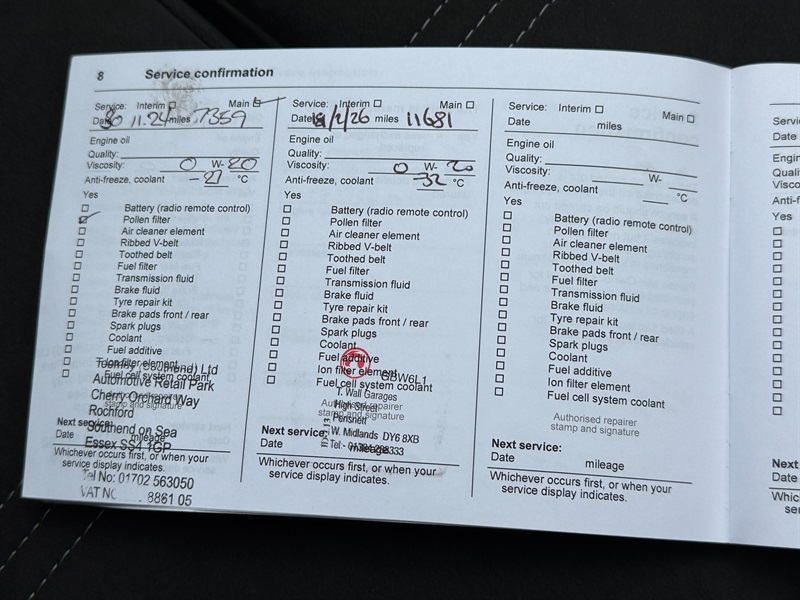 8 Service confirmation
Service: Interim Main
Date 30 11.24 miles 7359
Engine oil
Quality:
Viscosity: 0 W- 20
Anti-freeze, coolant -27 °C
Yes
Battery (radio remote control)
Pollen filter
Air cleaner element
Ribbed V-belt
Toothed belt
Fuel filter
Transmission fluid
Brake fluid
Tyre repair kit
Brake pads front / rear
Spark plugs
Coolant
Fuel additive
Ion filter element
Fuel cell system coolant
(Southend) Ltd
Automotive Retail Park
Cherry Orchard Way
stamp and signature
Rochford
Southend on Sea
Next service:
Date mileage
Essex SS4 1GP
Whichever occurs first, or when your
service display indicates.
Tel No: 01702 563050
VAT 8861 05
Service: Interim Main
Date /2/26 miles 11681
Engine oil
Quality:
Viscosity: 0 W- 20
Anti-freeze, coolant -32 °C
Yes
Battery (radio remote control)
Pollen filter
Air cleaner element
Ribbed V-belt
Toothed belt
Fuel filter
Transmission fluid
Brake fluid
Tyre repair kit
Brake pads front / rear
Spark plugs
Coolant
Fuel additive
Ion filter element
GBW6L1
Fuel cell system coolant
T. Wall Garages
Authorised repairer
High Street
stamp and signature
Pensnett
W. Midlands DY6 8XB
Next service:
Date mileage
Whichever occurs first, or when your
service display indicates.
Service: Interim Main
Date miles
Engine oil
Quality:
Viscosity: W-
Anti-freeze, coolant °C
Yes
Battery (radio remote control)
Pollen filter
Air cleaner element
Ribbed V-belt
Toothed belt
Fuel filter
Transmission fluid
Brake fluid
Tyre repair kit
Brake pads front / rear
Spark plugs
Coolant
Fuel additive
Ion filter element
Fuel cell system coolant
Authorised repairer
stamp and signature
Next service:
Date mileage
Whichever occurs first, or when your
service display indicates.
Date
Yes
Date